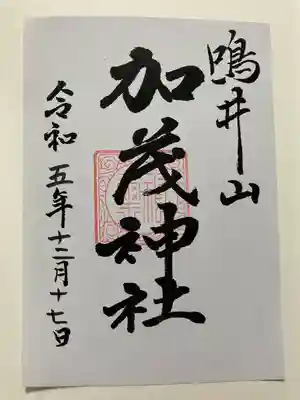 鴨井山
加茂神社
令和五年十二月十七日